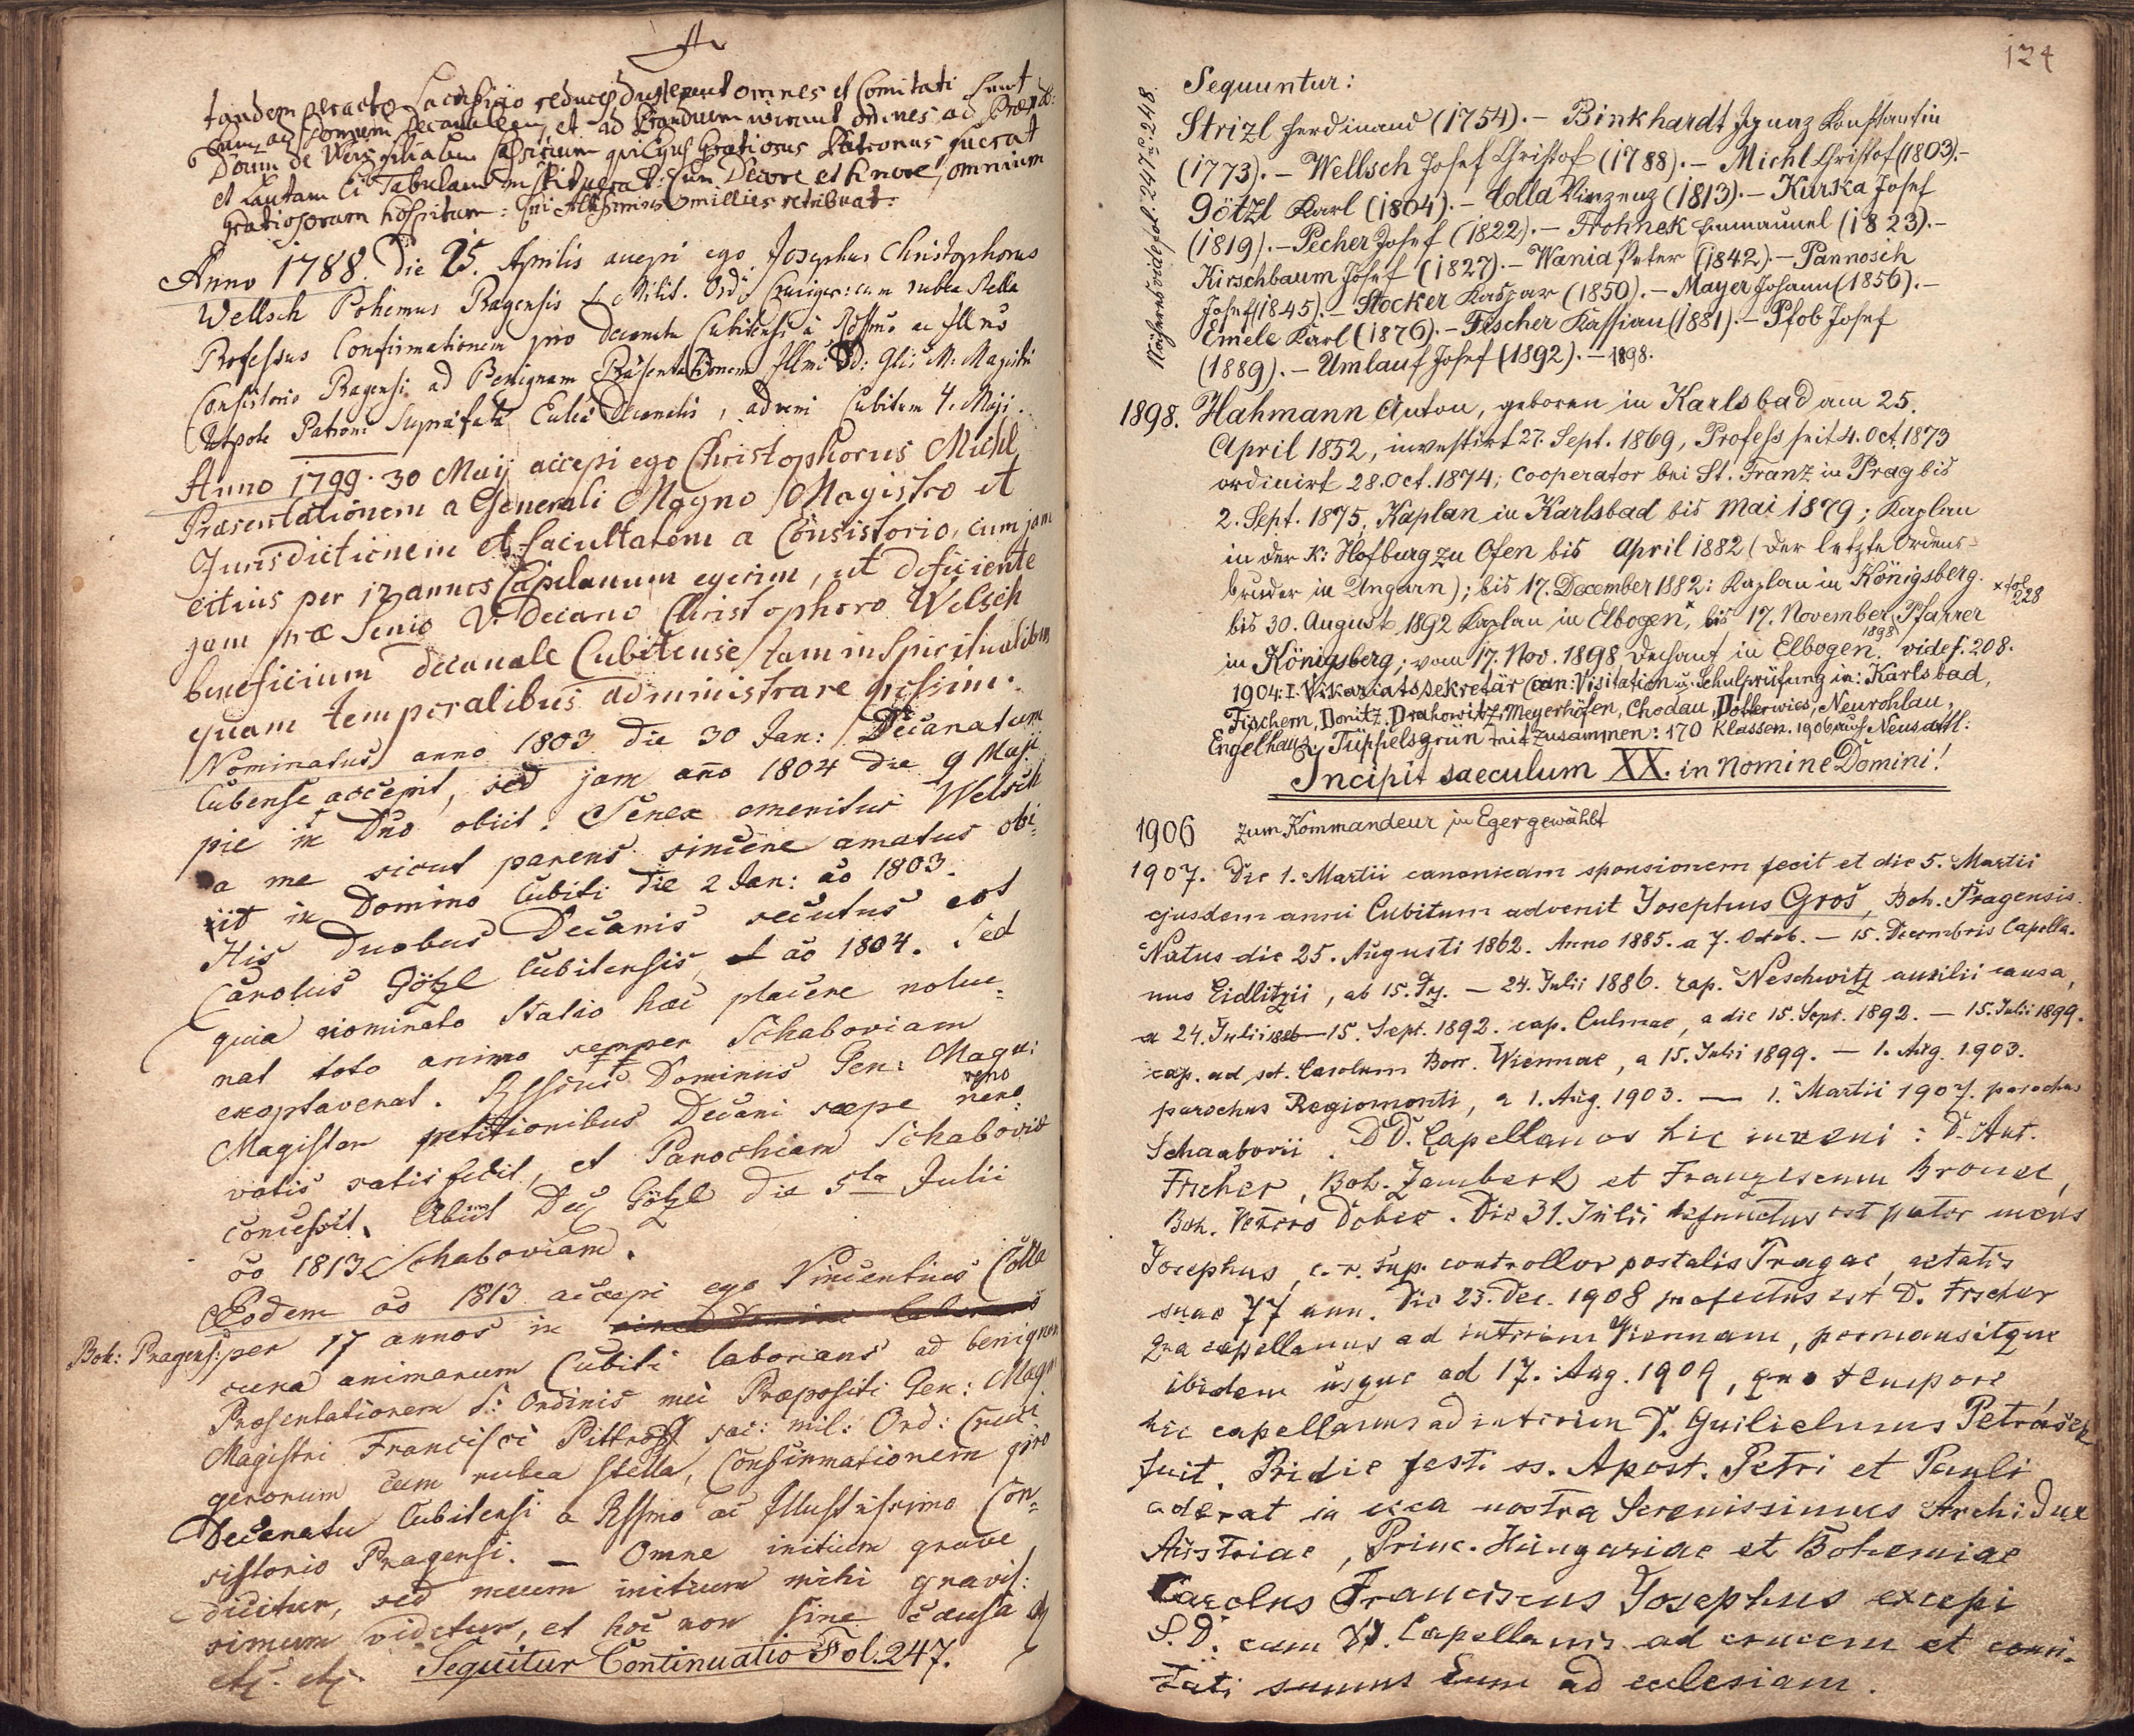 tandem peracto Sacrificio omnes et Comitati sunt
Domum Decanalem, et ad Prandium iverunt omnes ad
Gratiosus Patronus fuerat
et Lautam Tabulam instituerat: cum Decore et honore, omnium
gratiosorum hospitum: Qui Altissimus millies retribuat.
Anno 1788. die 25. Aprilis accepi ego Josephus Christophorus
Wellsch Bohemus Pragensis Milit. Ord: Cruciger: cum rubea stella
Professus Confirmationem pro Decanatu Cubitensi à Rdssmo ac Illmo
Consistorio Pragensi ad Benignam Präsentationem Illmi Dd: Glis M: Magistri
Utpote Patroni Suprafatae Decanalis, adveni Cubitum 4. Maji.
Anno 1799. 30 Maij accepi ego Christophorus Michl
Præsentationem a Generali Magno Magistro et
Jurisdictionem et facultatem a Consistorio, cum jam
citius per 12 annos Capelanum egerim, ut deficiente
jam præ Senio V. Decano Christophoro Welsch
beneficium Decanale Cubitense tam in Spiritualibus
quam temporalibus administrare possim.
Nominatus anno 1803 die 30 Jan: Decanatum
Cubense accepit, sed jam año 1804 die 9 Maji
pie in Dno obiit. Senex emeritus Welsch
a me sicut parens sincere amatus obi-
iit in Domino Cubiti die 2 Jan: ao 1803.
His duobus Decanis secutus est
Carolus Götzl Cubitensis, ao 1804. Sed
quia nominato Statio hac placere nolue-
rat toto animo semper Schaboviam
exoptaverat. Rssmus Dominus Gen: Magn:
Magister petitionibus Decani sæpe reno
vatis satisfecit, et Parochiam Schabovis
concessit. Abiit Götzl die 5ta Julii
ao 1813 Schaboviam.
Eodem ao 1813 accepi ego Vincentius Colla
Boh: Pragens: per 17 annos in
cura animarum Cubiti laborans ad benignam
Presentationem S: Ordinis mei Præpositi Gen: Magn
Magistri Francisci Pittroff sac: mil: Ord: Cruci
gerorum cum rubea stella, Confirmationem pro
Decanatu Cubitensi a Rssmo ac Illustrissimo Con-
sistorio Pragensi. — Omne initium grave
dicitur, sed meum initium mihi gravis:
simum videtur, et hoc non sine causa
etz. etz. Sequitur Continuatio Fol. 247.
124
Sequuntur:
Strizl Ferdinand (1754). – Binkhardt Ignaz Konstantin
(1773). – Wellsch Josef Christof (1788). – Michl Christof (1803). –
Götzl Karl (1804). – Colla Vinzenz (1813). – Kurska Josef
(1819). – Pecher Josef (1822). – Frohnek Emmanuel (1823). –
Kirschbaum Josef (1827). – Wania Peter (1842). – Pannosch
Josef (1845). – Stocker Kaspar (1850). – Mayer Johann (1856). –
Emele Karl (1876). – Fischer Kassian (1881). – Pfob Josef
(1889). – Umlauf Josef (1892). – 1898.
Näheres auf fol. 247 u. 248
1898. Hahmann Anton, geboren in Karlsbad am 25.
April 1852, investirt 27. Sept. 1869, Profess seit 4. Oct. 1873
ordinirt 28. Oct. 1874; Cooperator bei St. Franz in Prag bis
2. Sept. 1875, Kaplan in Karlsbad bis Mai 1879; Kaplan
in der K: Hofburg zu Ofen bis April 1882 (der letzte Ordens-
bruder in Ungarn); bis 17. December 1882: Kaplan in Königsberg.
x fol 228
bis 30. August 1892 Kaplan in Elbogen x, bis 17. November 1898 Pfarrer
in Königsberg; vom 17. Nov. 1898 Dechant in Elbogen. vide f. 208.
1904: I. Vikariatssekretär (can: Visitation u. Schulprüfung in: Karlsbad,
Fischern, Donitz, Drahowitz, Meyerhöfen, Chodau, Dotterwies, Neurohlau,
Engelhaus, Tüppelsgrün mit zusammen: 170 Klassen. 1906 auch Neusattl:
Incipit saeculum XX. in nomine Domini!
1906 zum Kommandeur in Eger gewählt
1907. Die 1. Martii canonicam sponsionem fecit et die 5. Martii
ejusdem anni Cubitum advenit Josephus Groš, Boh. Pragensis.
Natus die 25. Augusti 1862. Anno 1885. a 7. Octob. – 15. Decembris Capella-
nus Eidlitzii, ab 15. Dz. – 24. Julii 1886. cap. Neschwitz auxilii causa,
a 24. Julii 1886 – 15. Sept. 1892. cap. Culmae, a die 15. Sept. 1892. – 15. Julii 1899.
cap. ad sct. Carolum Borr. Viennae, a 15. Julii 1899. – 1. Aug. 1903.
parochus Regiomonti, a 1. Aug. 1903. — 1. Martii 1907. parochus
Schaaborii. DD. Capellanos hic inveni: D. Ant.
Fischer, Boh. Žamberk et Franziscum Brouček,
Boh. Dobev. Die 31. Julii defunctus est pater meus
Josephus, c. r. sup. controllor postalis Pragae, aetatis
suae 77 ann. Die 23. Dec. 1908 profectus est D. Fischer
qua capellanus ad interim Viennam, permansitque
ibidem usque ad 17. Aug. 1909, quo tempore
hic capellanus ad interim D. Guilielmus Petráček
fuit. Pridie festi ss. Apost. Petri et Pauli
aderat in nostra Serenissimus Archidux
Austriae, Princ. Hungariae et Bohemiae
Carolus Franciscus Josephus excepi
S. D. cum Capellanis ad crucem et comi-
tati sumus Eum ad ecclesiam.